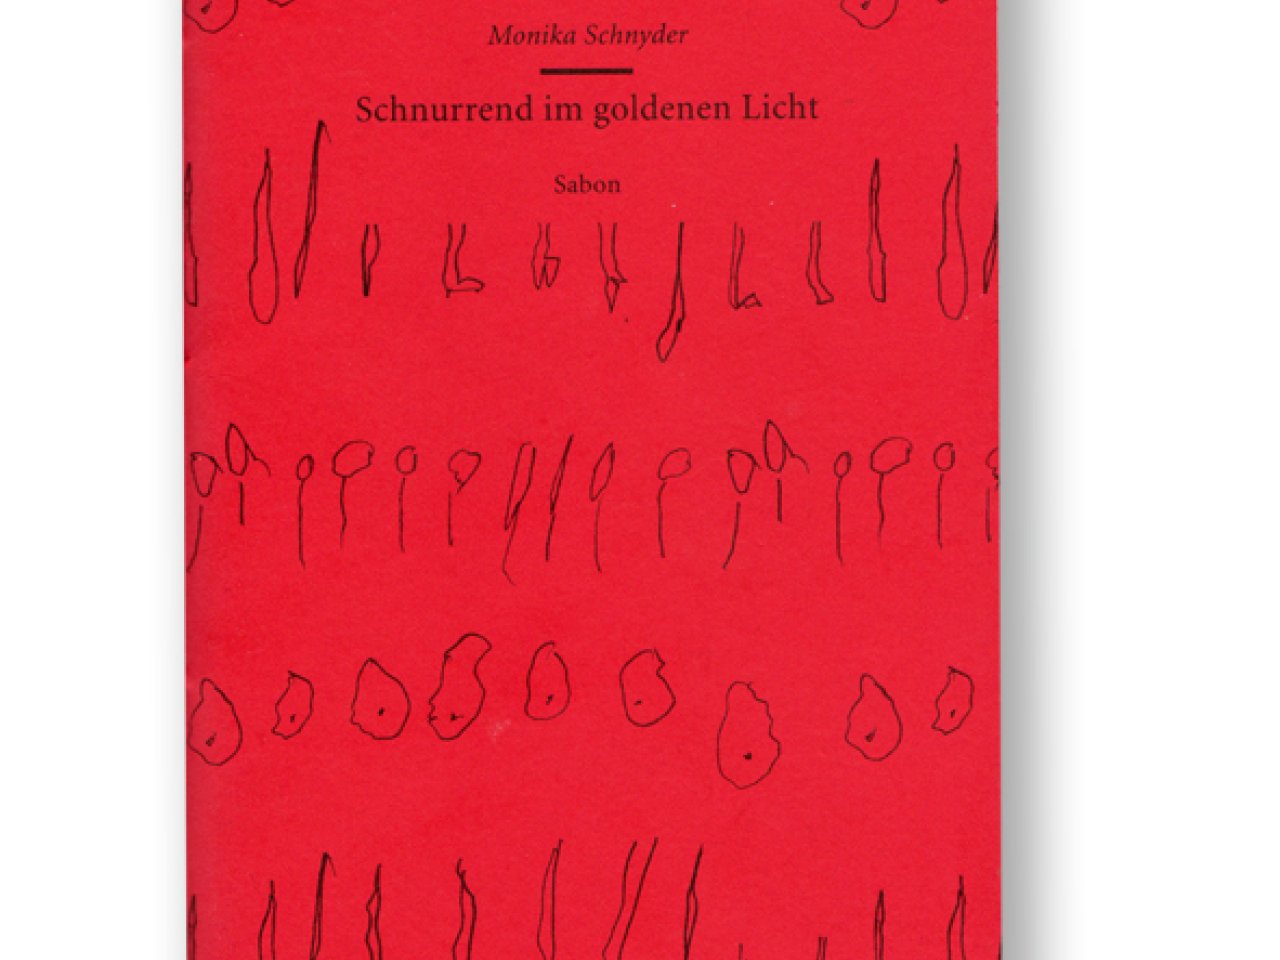 Monika Schnyder
Schnurrend im goldenen Licht
Sabon